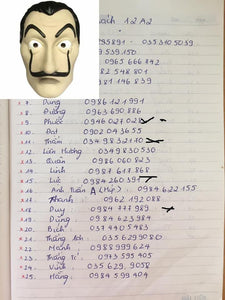 oách 12A2
295891 - 0353105039
7.539.150
0965 666 742
82 548 801
381 146 839
7. Dung 0986 121 991
8. Dương 0963 690 886
9. Phước 0946 027 028
10. Đạt 0902 043 655
11. Thắm 034 9832170
12. Liên Hương 0349830530
13. Quân 0986 060 823
14. Linh 0987 617 868
15. Lực 0984 260 391
16. Anh Tuấn A (Mập) 0984 622 155
17. Thanh 0962 192 088
18. Duy 0984 777 989
19. Dũng 0984 623 984
20. Bích 037 440 5483
21. Trang Anh 035 629 9080
22. Mạnh 0988 999 624
23. Trang Tí 0973 595 405
24. Vinh 035 629. 9058
25. Hằng 0984 599 404